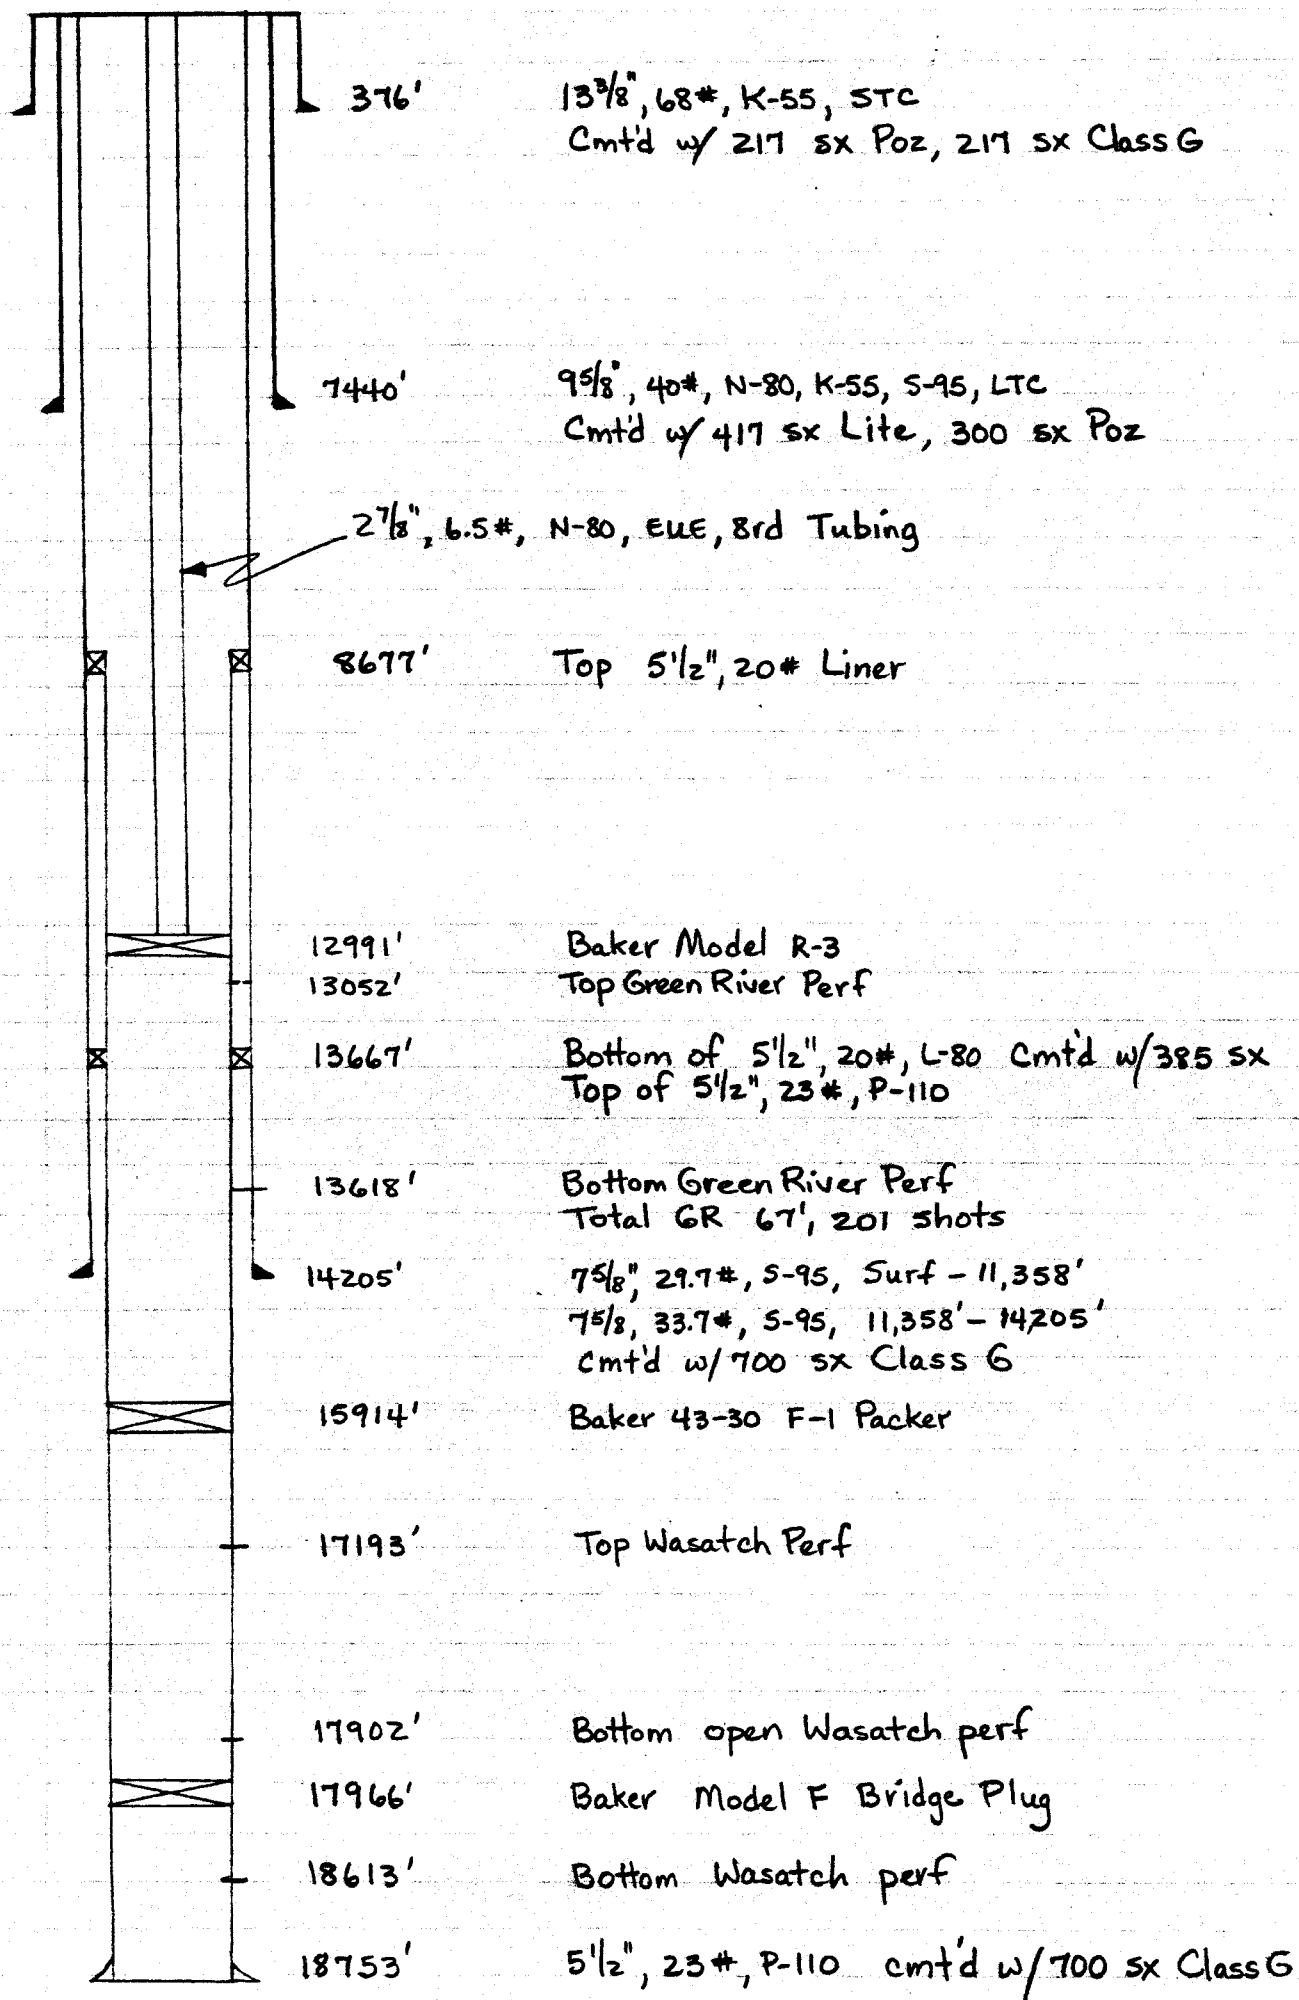 376' 13 3/8", 68#, K-55, STC
Cmt'd w/ 217 sx Poz, 217 sx Class G
7440' 9 5/8", 40#, N-80, K-55, S-95, LTC
Cmt'd w/ 417 sx Lite, 300 sx Poz
2 7/8", 6.5#, N-80, EUE, 8rd Tubing
8677' Top 5 1/2", 20# Liner
12991' Baker Model R-3
13052' Top Green River Perf
13667' Bottom of 5 1/2", 20#, L-80 Cmt'd w/ 385 sx
Top of 5 1/2", 23#, P-110
13618' Bottom Green River Perf
Total GR 67', 201 shots
14205' 7 5/8", 29.7#, S-95, Surf - 11,358'
7 5/8, 33.7#, S-95, 11,358' - 14,205'
Cmt'd w/ 700 sx Class G
15914' Baker 43-30 F-1 Packer
17193' Top Wasatch Perf
17902' Bottom open Wasatch perf
17966' Baker Model F Bridge Plug
18613' Bottom Wasatch perf
18753' 5 1/2", 23#, P-110 cmt'd w/ 700 sx Class G